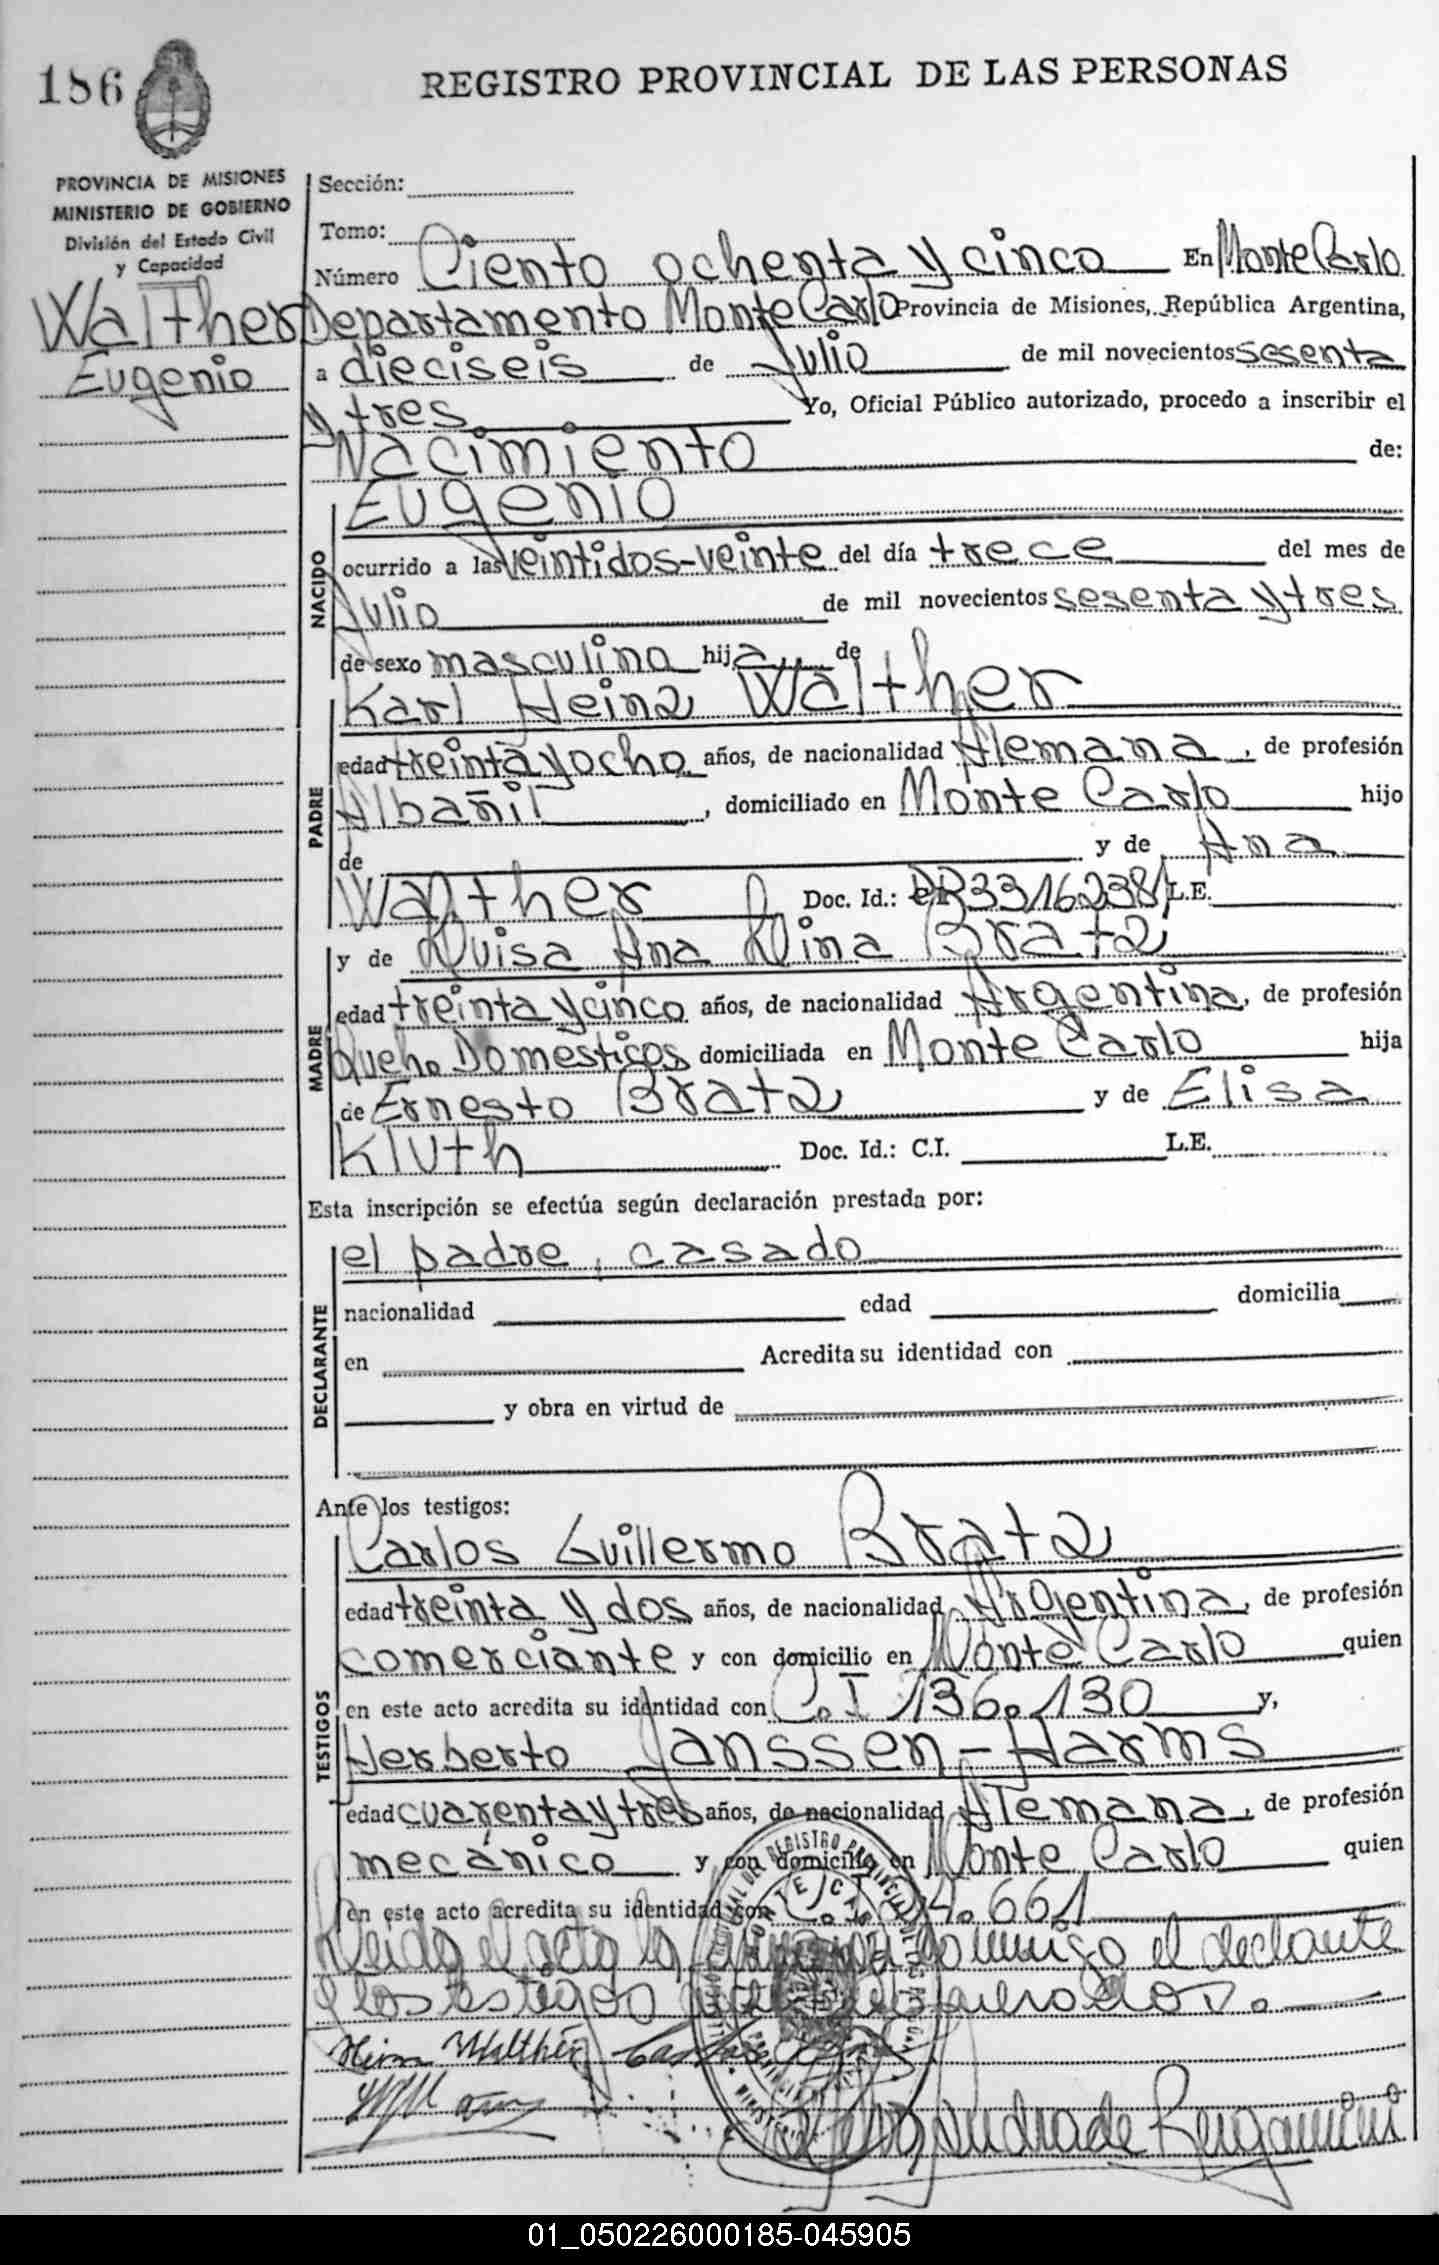 186
REGISTRO PROVINCIAL DE LAS PERSONAS
PROVINCIA DE MISIONES
MINISTERIO DE GOBIERNO
División del Estado Civil
y Capacidad
Walther
Eugenio
Sección:
Tomo:
Número Ciento ochenta y cinco En Monte Carlo
Departamento Monte Carlo Provincia de Misiones, República Argentina,
a dieciseis de Julio de mil novecientos sesenta
y tres Yo, Oficial Público autorizado, procedo a inscribir el
Nacimiento de:
NACIDO
Eugenio
ocurrido a las veintidos-veinte del día trece del mes de
Julio de mil novecientos sesenta y tres
de sexo masculino hij de
PADRE
Karl Heinz Walther
edad treinta y ocho años, de nacionalidad Alemana, de profesión
Albañil, domiciliado en Monte Carlo hijo
de y de Ana
Walther Doc. Id.: 3316238 L.E.
MADRE
y de Luisa Ana Lina Bratz
edad treinta y cinco años, de nacionalidad Argentina, de profesión
Queh. Domesticos domiciliada en Monte Carlo hija
de Ernesto Bratz y de Elisa
Kluth Doc. Id.: C.I. L.E.
Esta inscripción se efectúa según declaración prestada por:
DECLARANTE
el padre, casado
nacionalidad edad domicilia
en Acredita su identidad con
y obra en virtud de
Ante los testigos:
TESTIGOS
Carlos Guillermo Bratz
edad treinta y dos años, de nacionalidad Argentina, de profesión
comerciante y con domicilio en Monte Carlo quien
en este acto acredita su identidad con C.I 136.130 y,
Herberto Janssen-Harms
edad cuarenta y tres años, de nacionalidad Alemana, de profesión
mecánico y con domicilio en Monte Carlo quien
en este acto acredita su identidad con C.I 4.661
Leida el acta la conmigo el declarante
y los testigos
Walther
Andrade Bergamini
01_050226000185-045905